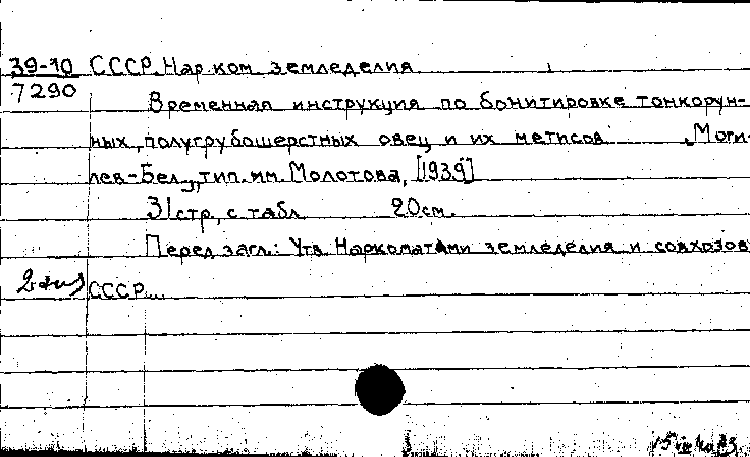 39-10 СССР. Нар. ком. земледелия
7290
Временная инструкция по бонитировке тонкорун-
ных, полугрубошерстных овец и их метисов. Моги-
лев-Бел., тип. им. Молотова, [1939]
31 стр., с табл. 20 см.
Перед загл.: Утв. Наркоматами земледелия и совхозов
2 экз СССР...